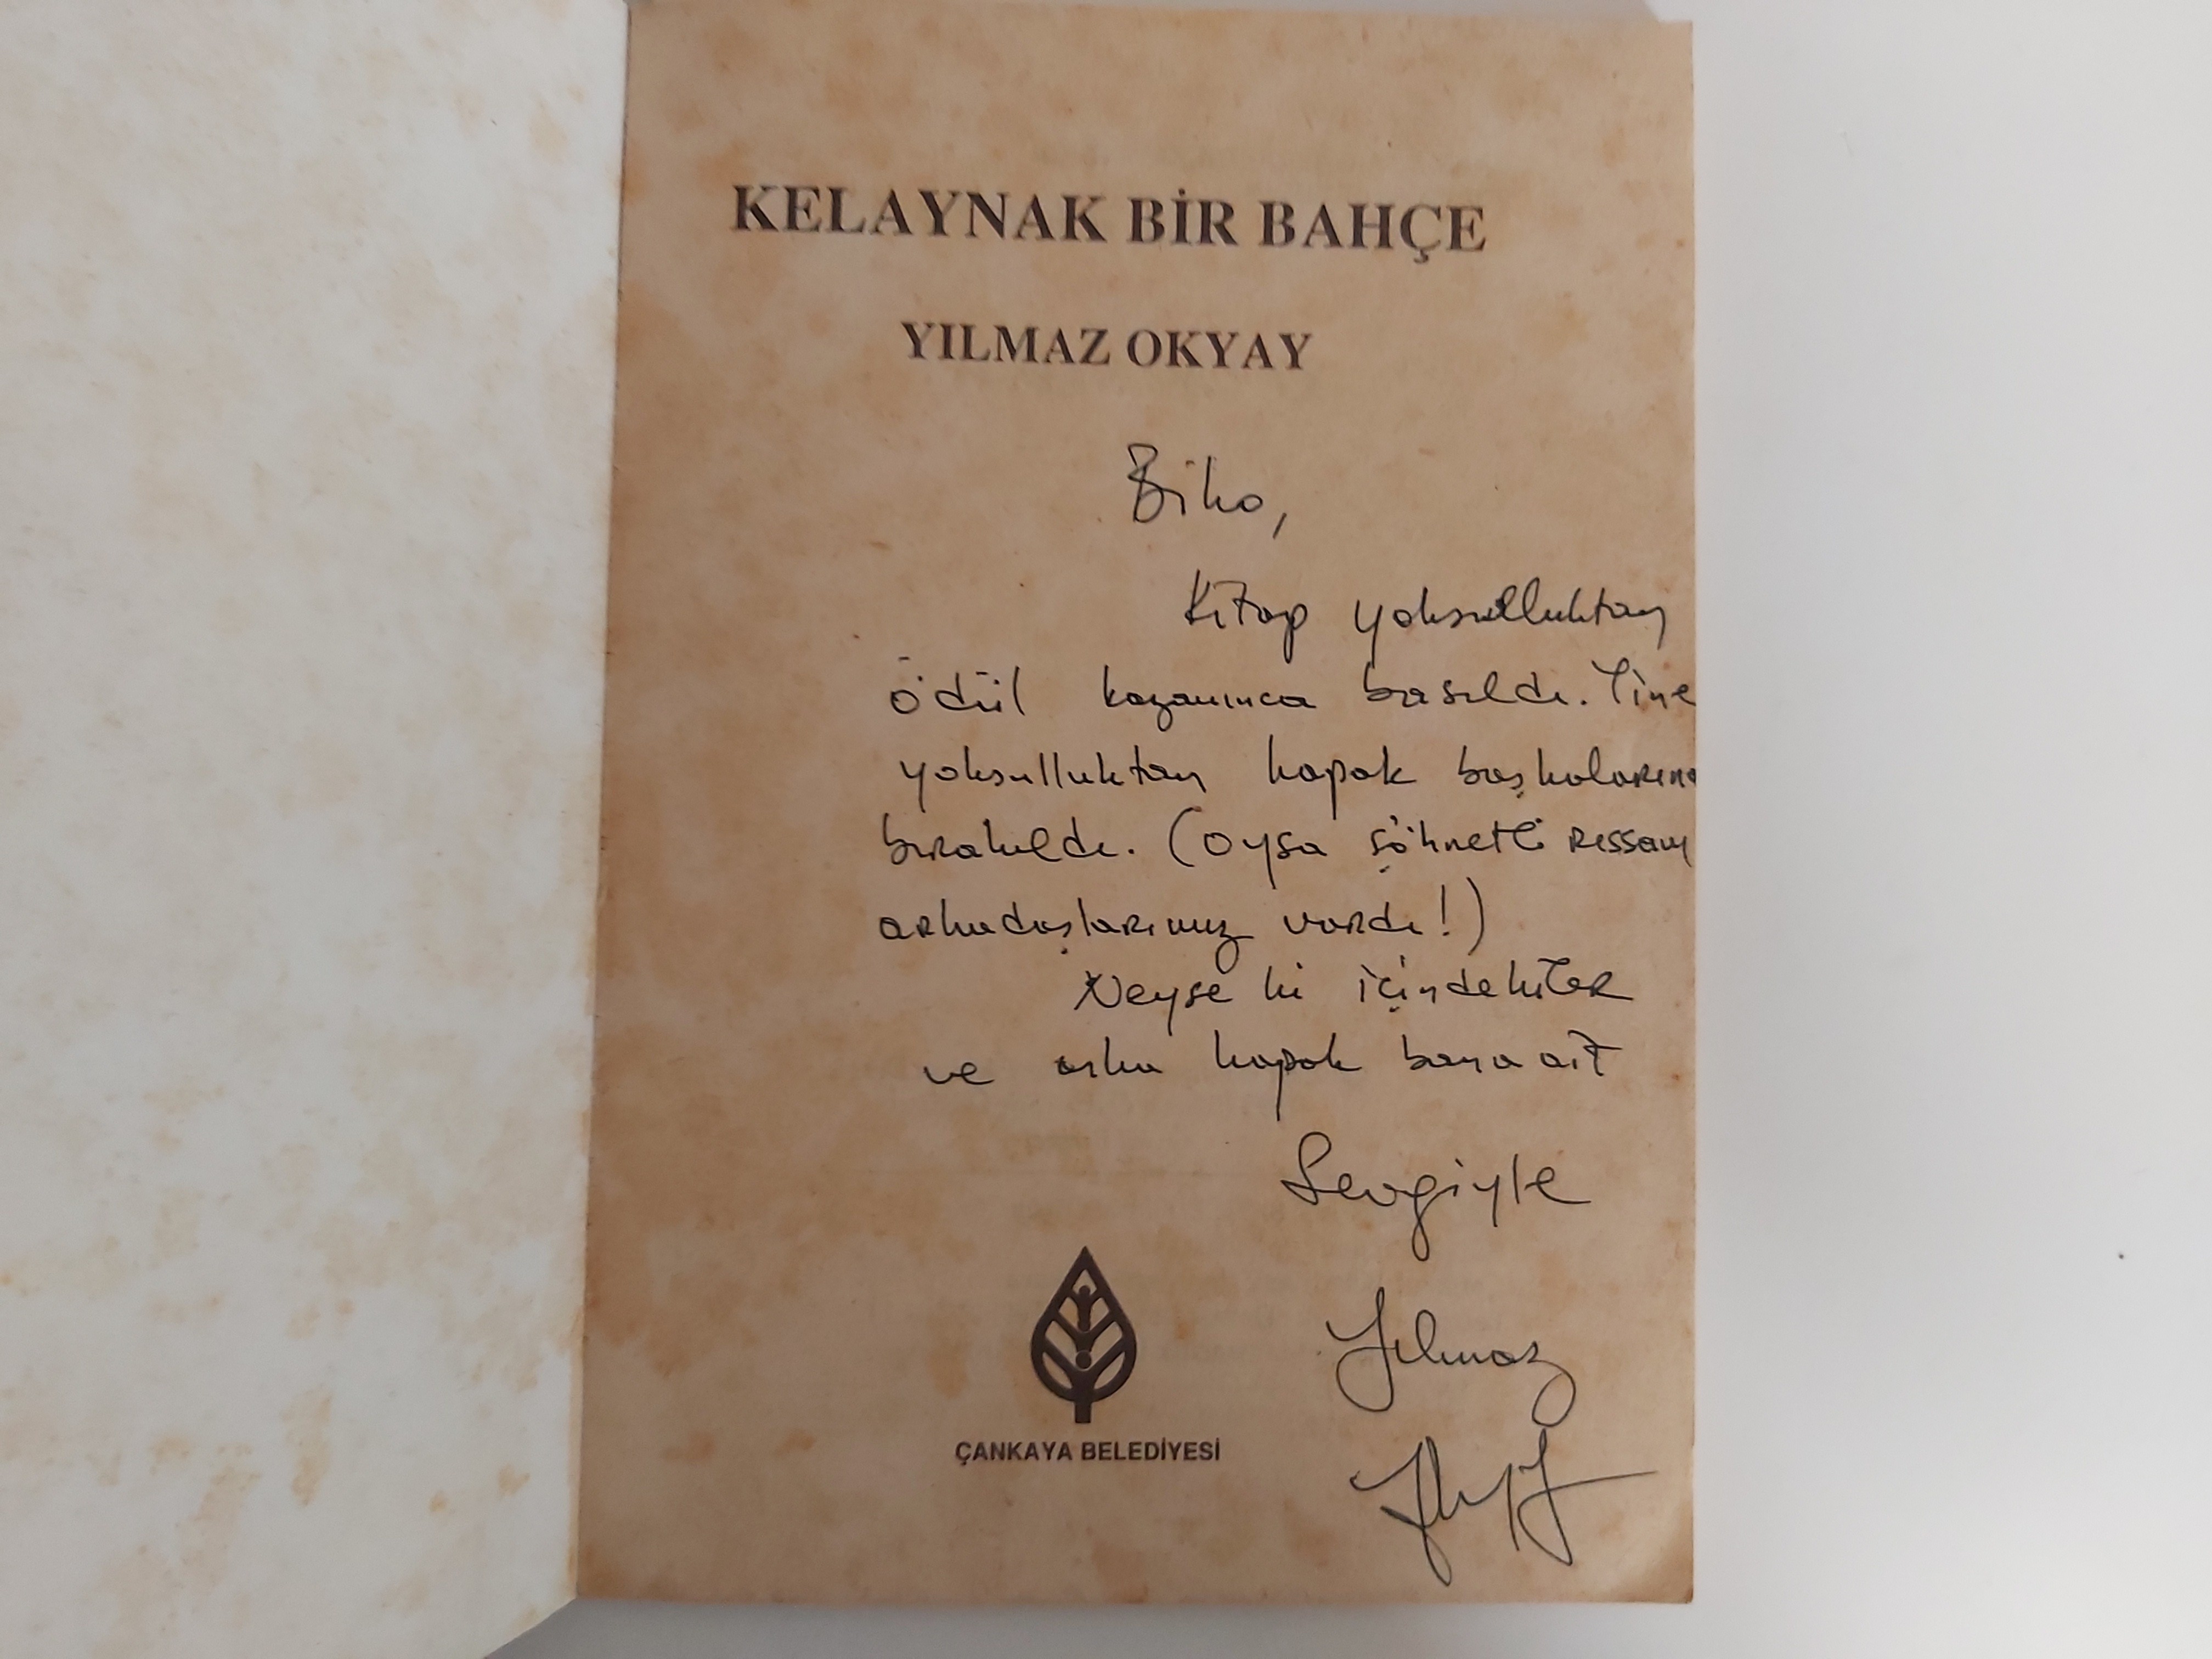 KELAYNAK BİR BAHÇE
YILMAZ OKYAY
Biko,
Kitap yoksulluktan
ödül kazanınca basıldı. Yine
yoksulluktan kapak başkalarına
bırakıldı. (Oysa şöhretli ressam
arkadaşlarımız vardı!)
Neyse ki içindekiler
ve arka kapak bana ait
Sevgiyle
Yılmaz
ÇANKAYA BELEDİYESİ